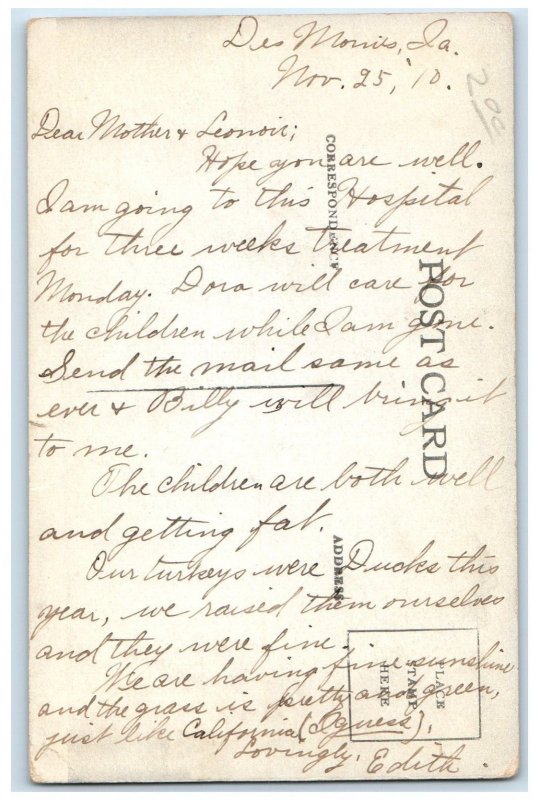 Des Moines, Ia.
Nov. 25, '10.
200
Dear Mother & Leonoir;
Hope you are well.
I am going to this Hospital
for three weeks treatment
Monday. Dora will care for
the children while I am gone.
Send the mail same as
ever & Billy will bring it
to me.
The children are both well
and getting fat.
Our turkeys were Ducks this
year, we raised them ourselves
and they were fine.
We are having fine sunshine
and the grass is pretty and green,
just like California (I guess).
Lovingly, Edith.
CORRESPONDENCE
POST CARD
ADDRESS
PLACE
STAMP
HERE